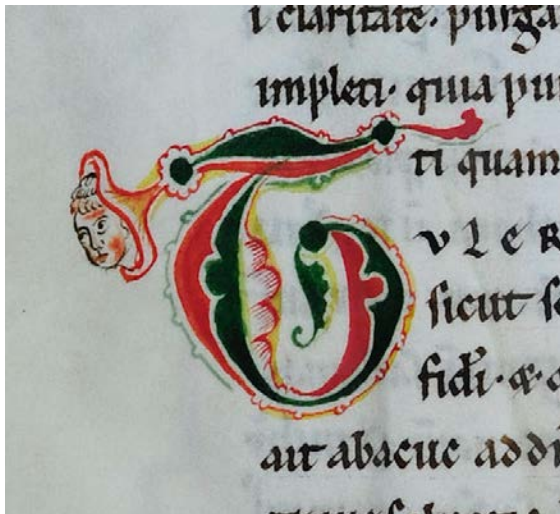 i claritate. purga
impleti. quia pu
ti quam
T
VLER
sicut s
fidi. & c
ait abacuc addi